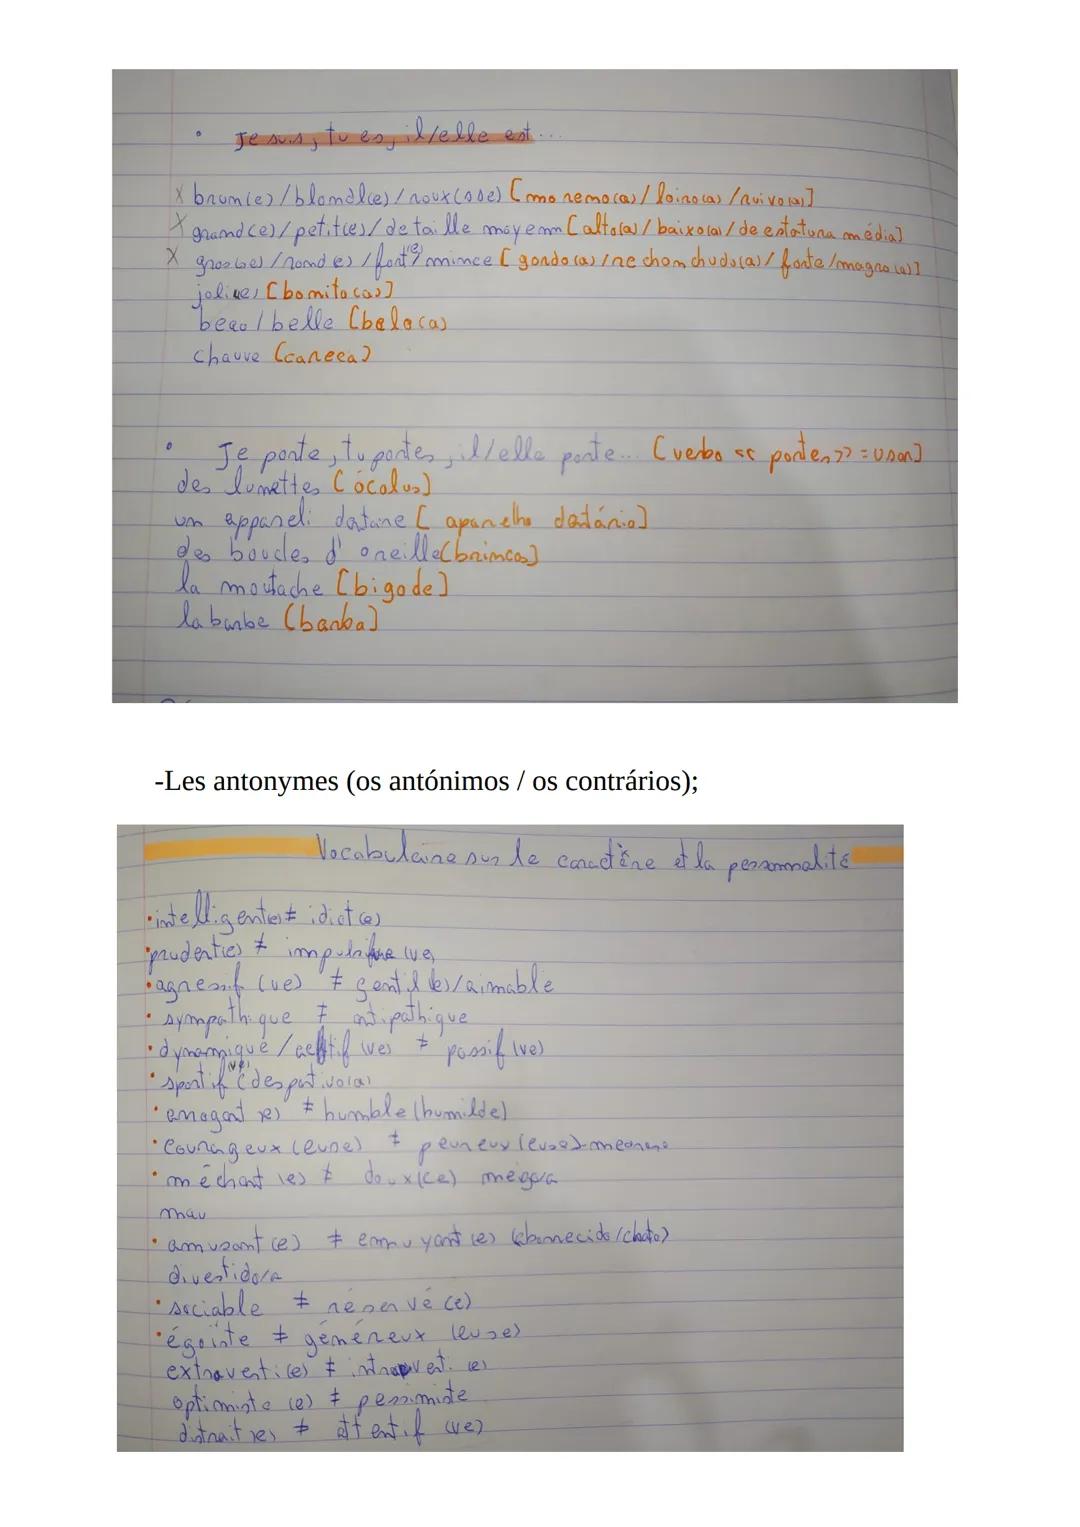 • Je suis, tu es, il/elle est...
X brun(e)/blond(e)/roux(sse) [moreno(a)/loiro(a)/ruivo(a)]
X grand(e)/petit(e)/de taille moyenn [alto(a)/baixo(a)/de estatura média]
X gros(se)/rond(e)/fort(e)/mince [gordo(a)/rechonchudo(a)/forte/magro(a)]
joli(e) [bonito(a)]
beau/belle [belo(a)
chauve [careca]
• Je porte, tu portes, il/elle porte... [verbo << porter>> = usar]
des lunettes [ócolus]
un appareli dataire [aparelho dentário]
des boucles d'oreille [brincos]
la moutache [bigode]
la barbe [barba]
-Les antonymes (os antónimos / os contrários);
Vocabulaire sur le caractère et la personnalité
• intelligent(e) ≠ idiot(e)
• prudent(e) ≠ (ve)
• agressif (ve) ≠ gentil (le)/aimable
• sympathique ≠ antipathique
• dynamique / actif (ve) ≠ passif (ve)
• sportif (ve) (desportivo(a)
• arrogant (e) ≠ humble (humilde)
• courageux (euse) ≠ peureux (euse)-
• méchant (e) ≠ doux(ce) meigo/a
mau
• amusant (e) ≠ ennuyant (e) (aborrecido/chato)
divertido/a
• sociable ≠ réservé (e)
• égoïste ≠ généreux (euse)
extraverti(e) ≠ introverti (e)
optimiste (e) ≠ pessimiste
distrait (e) ≠ attentif (ve)